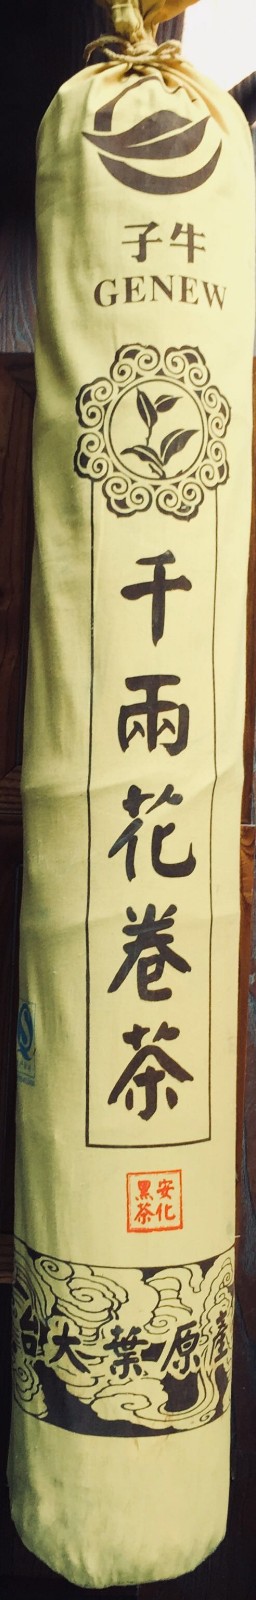 子牛
GENEW
千兩花卷茶
安化
黑茶
台大葉原